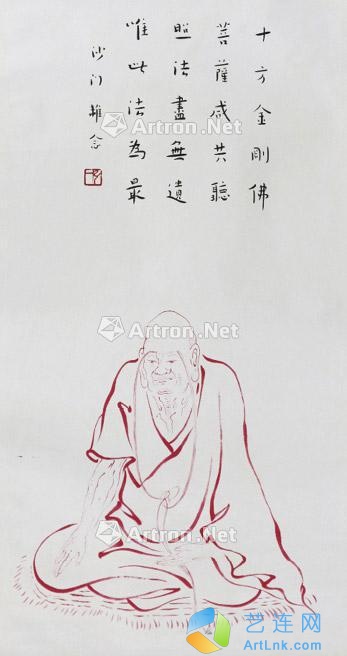 十方金剛佛
菩薩咸共聽
照法盡無遺
唯此法為最
沙门雜念
Artron.Net
Artron.Net
Artron.Net
Artron.Net
艺连网
ArtLnk.com